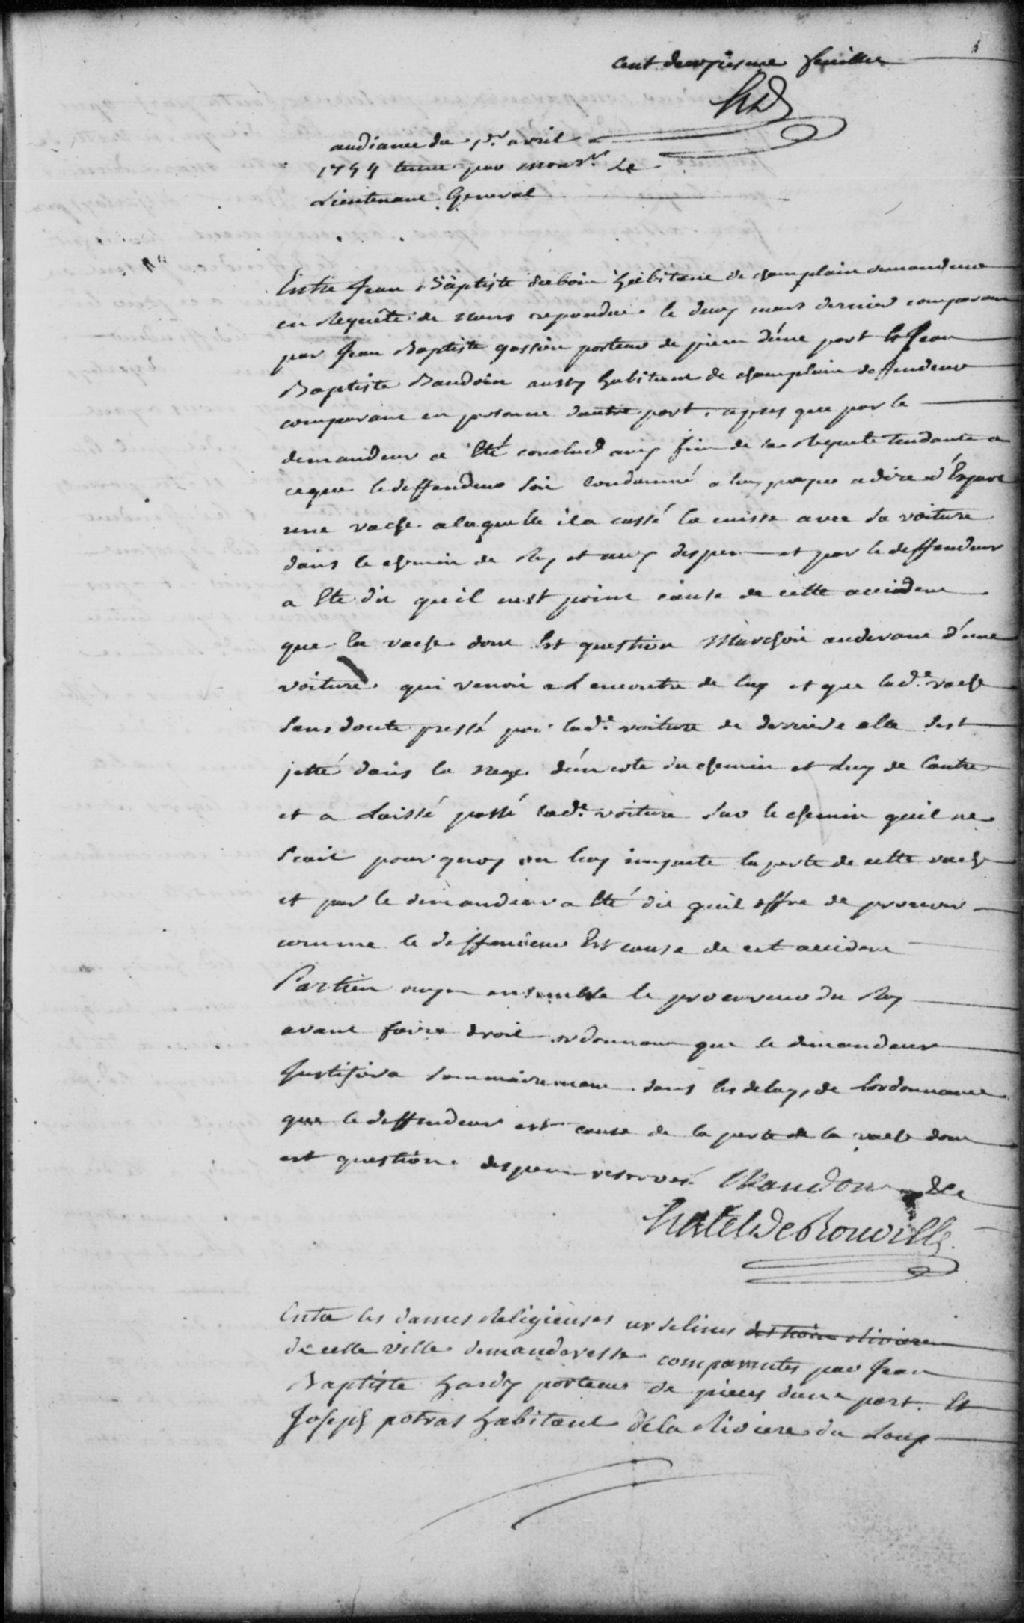 Cent deuxsieme feuillet
hdr
audiance du 1er avril
1754 tenue par monsr. Le
Lieutenant General
Entre Jean Baptiste dubois habitant de champlain demandeur
en Requête de nous repondue le deux mars dernier comparant
par Jean Baptiste gossin porteur de pieces d'une part Et Jean
Baptiste Baudoin aussy habitant de champlain deffendeur
comparant en personne dautre part. apres que par le
demandeur a Eté conclud aux fins de sa Requete tendante a
ceque le deffendeur soit Condamné a luy payer a dire d'Expert
une vache a laquelle il a cassé la cuisse avec sa voiture
dans le chemin du Roy et aux depens et par le deffendeur
a Eté dit quil nest point cause de cette accident
que la vache dont Est question Marchoit audevant d'une
voiture qui venoit a Lencontre de luy et que lade. vache
sans doute pressé par lade. voiture de derriere elle sest
jetté dans la nege d'un coté du chemin et Luy de Lautre
et a Laissé passé lade. voiture sur le chemin quil ne
scait pourquoy on luy impute la perte de cette vache
et par le demandeur a Eté dit quil offre de prouver
comme le deffendeur Est cause de cet accident
Parties ouyes ensemble le procureur du Roy
avant faire droit ordonnons que le demandeur
justifira sommairement dans les delays de lordonnance
que le deffendeur est cause de la perte de la vache dont
est question. depens reservés. Mandons &c
hertel de Rouville
Entre les dames Religieuses urselines des trois Rivieres
de cette ville demanderesse comparantes par Jean
Baptiste hardy porteur de pieces d'une part. Et
Joseph potras habitant de la Riviere du Loup